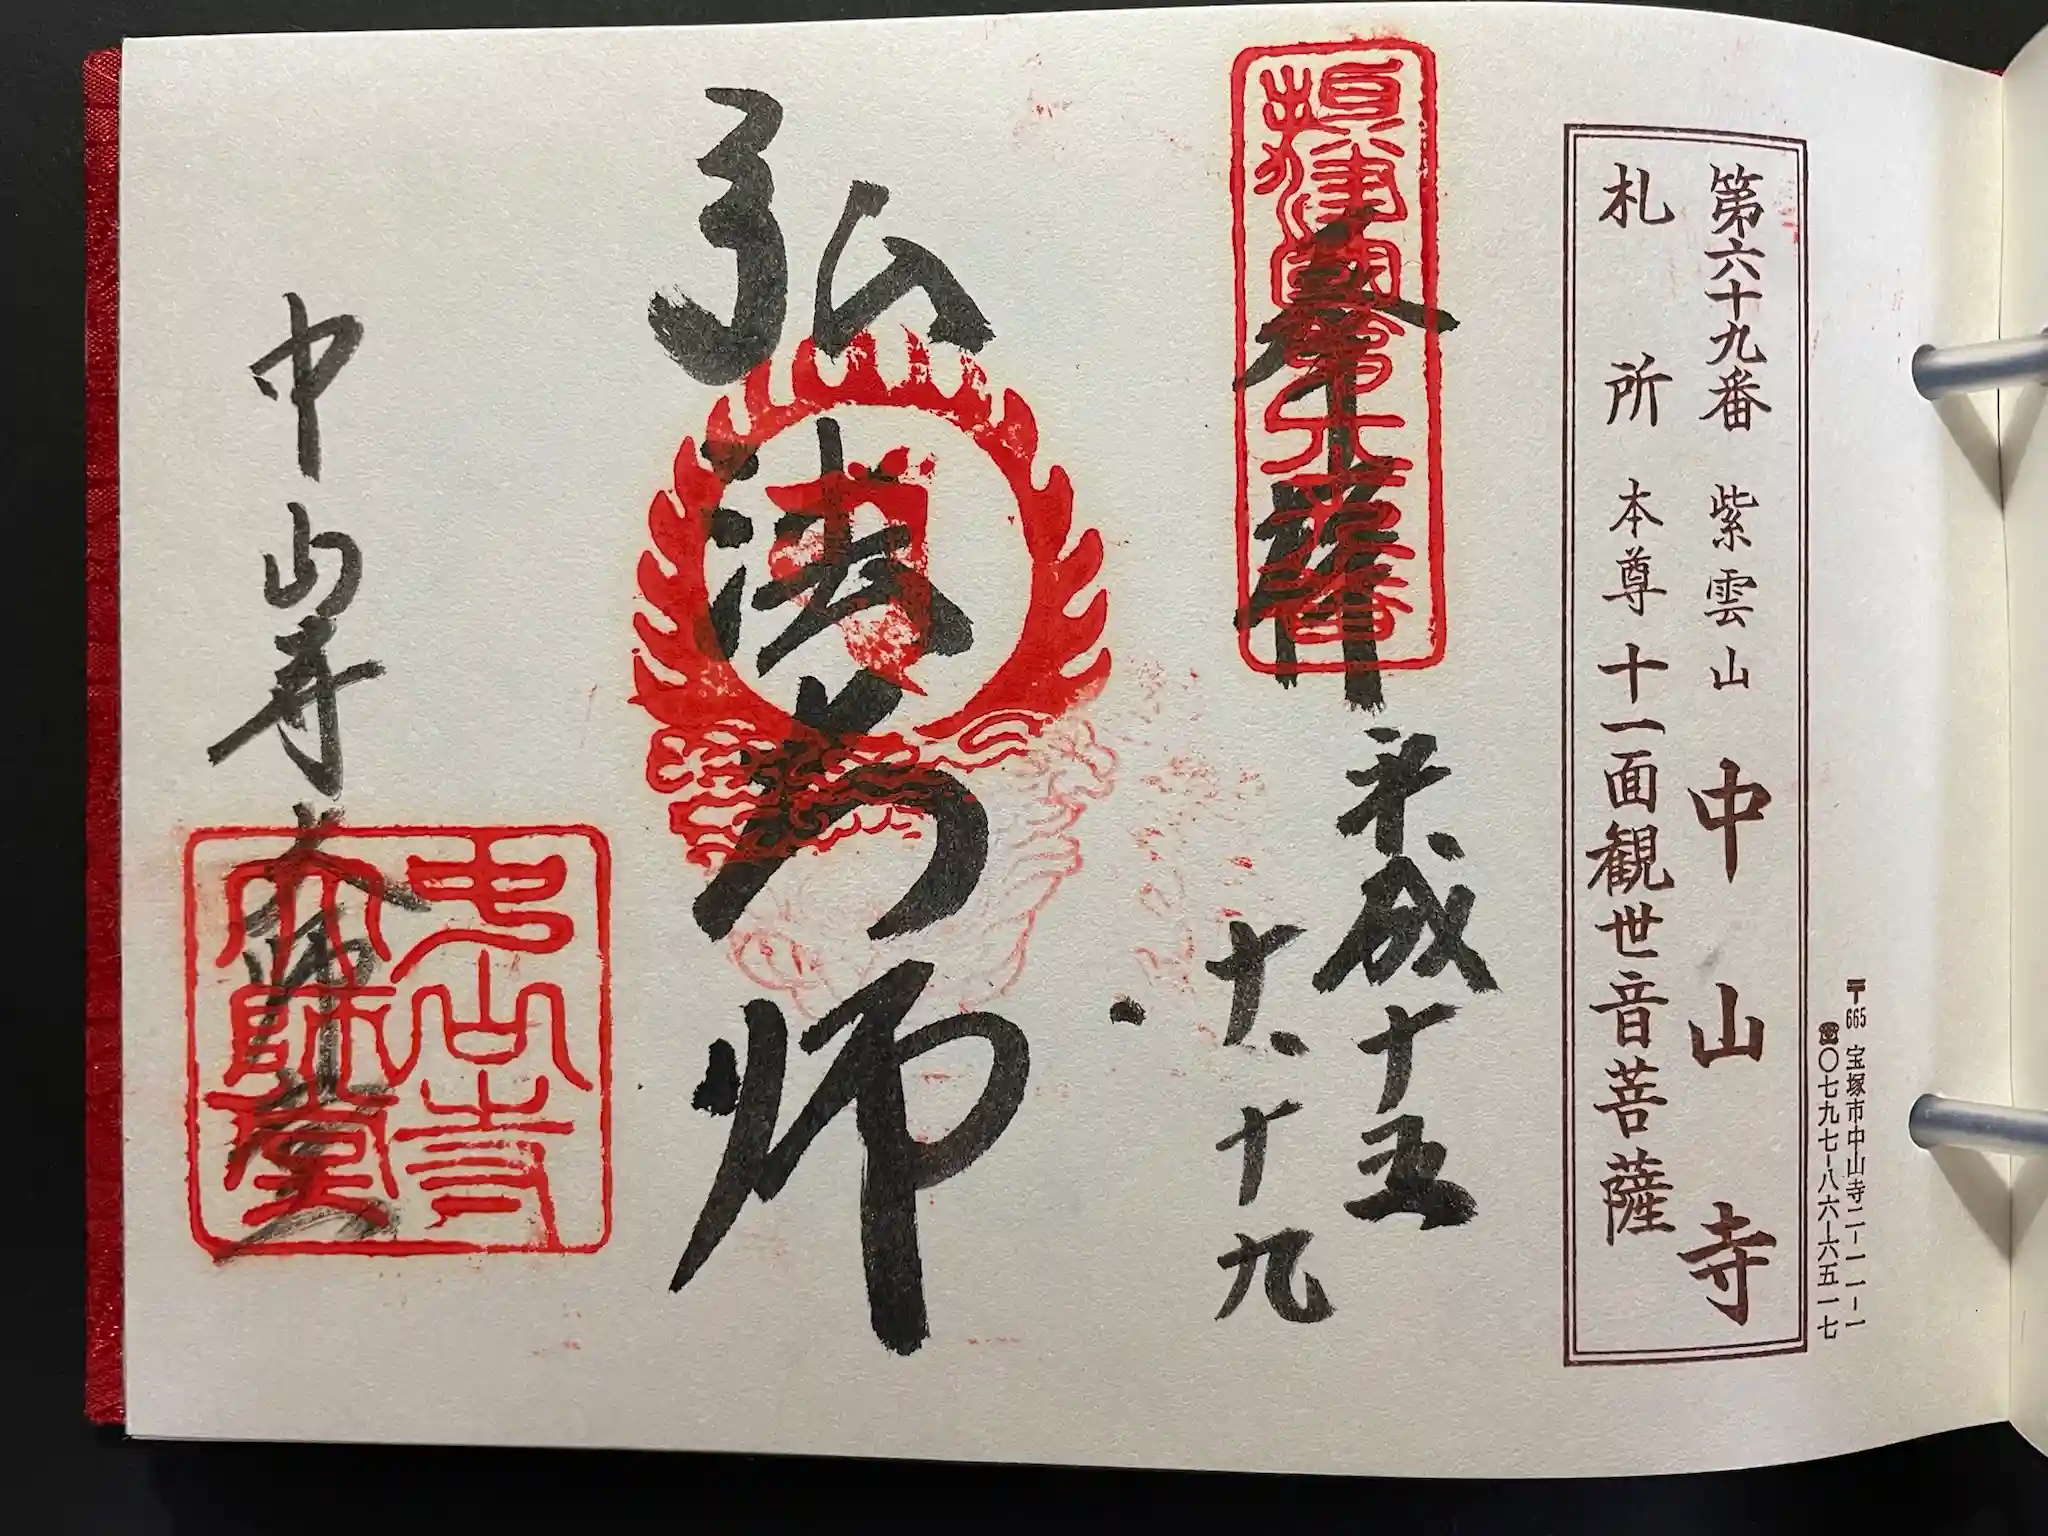 〒665 宝塚市中山寺二-一一-一
☎〇七九七-八六-六五一七
第六十九番 紫雲山 中山寺
札所 本尊 十一面観世音菩薩
摂津国第六十九番
奉拝
平成十五
十、十九
弘法大師
中山寺大師堂
中山寺
大師堂